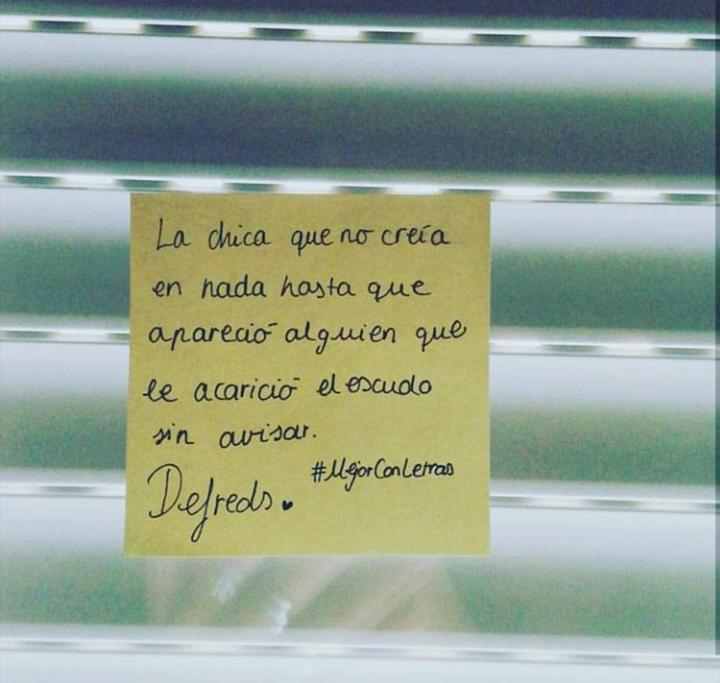 La chica que no creía
en nada hasta que
apareció alguien que
le acarició el escudo
sin avisar.
#MejorConLetras
Defreds.